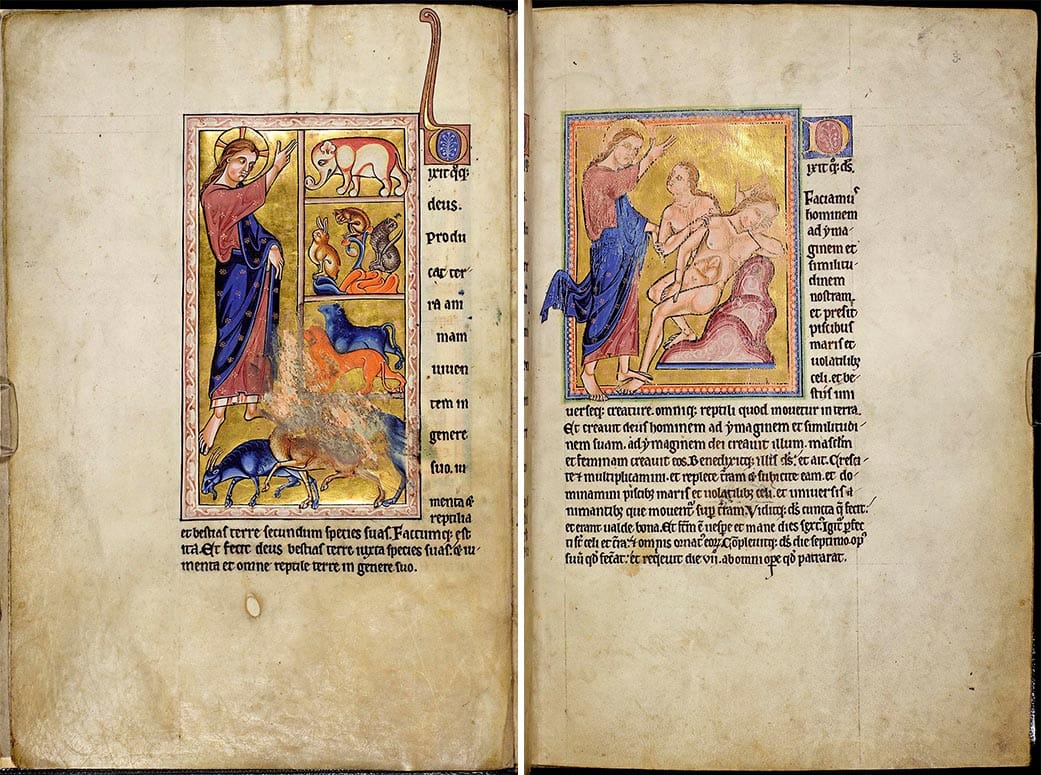 Dixit q̃q;
deus.
Produ
cat ter-
ra ani
mam
uiuen
tem in
genere
suo. iu
menta &
reptilia
et bestias terre secundum species suas. Factumq; est
ita. Et fecit deus bestias terre iuxta species suas. & iu-
menta et omne reptile terre in genere suo.
Dixit q; ds̃.
Faciamus
hominem
ad yma-
ginem et
similitu-
dinem
nostram.
et presit
piscibus
maris et
uolatilib;
celi. et be-
stiis uni
uerseq; creature. omniq; reptili quod mouetur in terra.
Et creauit deus hominem ad ymaginem et similitudi-
nem suam. ad ymaginem dei creauit illum. masclm̃
et feminam creauit eos. Benedixitq; illis ds̃. et ait. Cresci-
te & multiplicamini. et replete t̃ram & subicite eam. et do-
minamini piscib; maris et uolatilib; celi. et uniuersis a
nimantib; que mouent̃ sup t̃ram. Viditq; ds̃ cuncta q̃ fecit.
et erant ualde bona. Et fc̃m ẽ uesp̃e et mane dies sext̃. Igit̃ p̃fec
ti st̃ celi et t̃ra. & omnis ornat̃ eoꝝ. Cõpleuitq; ds̃ die septimo op̃
suũ qd̃ fec̃at. et req̃euit die vii. ab omni ope qd̃ patrarat.